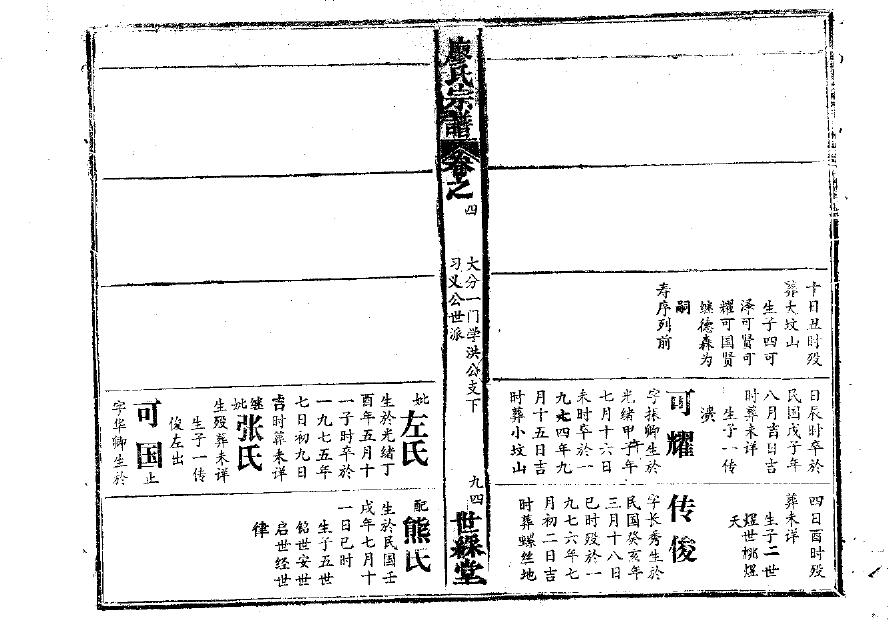 十日丑时殁
葬大坟山
生子四可
泽可贤可
耀可国贤
继德森为
嗣
寿序列前
日辰时卒於
民国戊子年
八月吉日吉
时葬未详
生子一传
可耀
字振卿生於
光绪甲子年
七月十六日
未时卒於一
九七四年九
月十五日吉
时葬小坟山
四日酉时殁
葬未详
生子二世
煜世栅煜
夭
传俊
字长秀生於
民国癸亥年
三月十八日
巳时殁於一
九七六年七
月初二日吉
时葬螺丝地
廖氏宗譜
卷之四
大分一门学洪公支下
习义公世派
九四
世綵堂
妣左氏
生於光绪丁
酉年五月十
一子时卒於
一九七五年
七日初九日
吉时葬未详
继妣张氏
生殁葬未详
生子一传
俊左出
可国止
字华卿生於
配熊氏
生於民国壬
戌年七月十
一日巳时
生子五世
铭世安世
启世经世
律